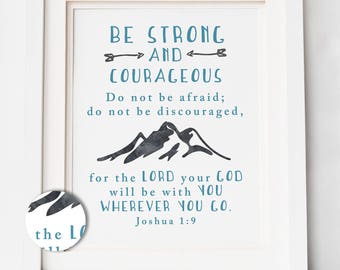 BE STRONG
AND
COURAGEOUS
Do not be afraid;
do not be discouraged,
for the LORD your GOD
will be with YOU
WHEREVER YOU GO.
Joshua 1:9
the LO